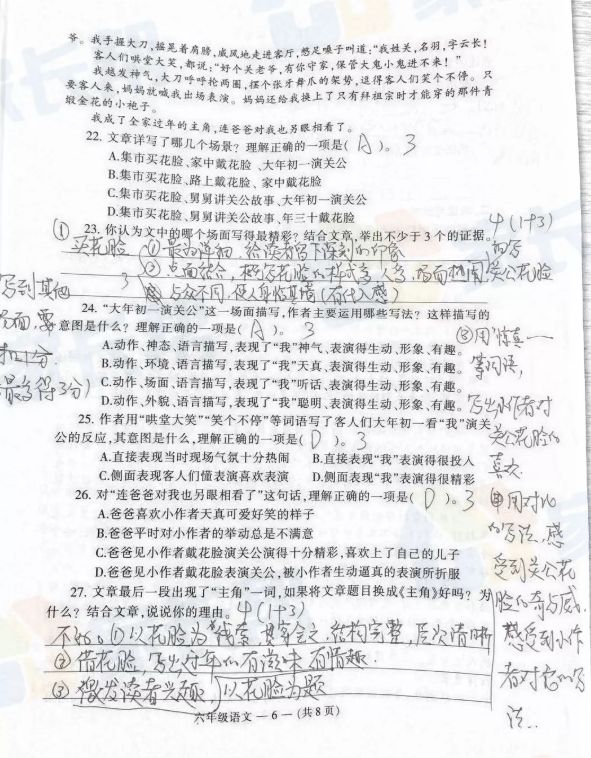 爷。我手握大刀,摇晃着肩膀,威风地走进客厅,憋足嗓子叫道:“我姓关,名羽,字云长!
客人们哄堂大笑,都说:“好个关老爷,有你守家,保管大鬼小鬼进不来!”
我越发神气,大刀呼呼抡两圈,摆个张牙舞爪的架势,逗得客人们笑个不停。只
要客人来,妈妈就喊我出场表演。妈妈还给我换上了只有拜祖宗时才能穿的那件青
缎金花的小袍子。
我成了全家过年的主角,连爸爸对我也另眼相看了。
22. 文章详写了哪几个场景?理解正确的一项是( A )。3
A.集市买花脸、家中戴花脸、大年初一演关公
B.集市买花脸、路上戴花脸、家中戴花脸
C.集市买花脸、舅舅讲关公故事、大年初一演关公
D.集市买花脸、舅舅讲关公故事、年三十戴花脸
① 23. 你认为文中的哪个场面写得最精彩?结合文章,举出不少于3个的证据。4(1+3)
买花脸 ①最为详细,给读者留下深刻的印象
3 ②点面结合,
③与众不同,使人身临其境(有代入感)
写到其他
场面,要
扣1分
最多得3分)
24. “大年初一演关公”这一场面描写,作者主要运用哪些写法?这样描写的
意图是什么?理解正确的一项是( A )。3
A.动作、神态、语言描写,表现了“我”神气、表演得生动、形象、有趣。
B.动作、环境、语言描写,表现了“我”天真、表演得生动、形象、有趣。
C.动作、场面、语言描写,表现了“我”听话、表演得生动、形象、有趣。
D.动作、外貌、语言描写,表现了“我”聪明、表演得生动、形象、有趣。
25. 作者用“哄堂大笑”“笑个不停”等词语写了客人们大年初一看“我”演关
公的反应,其意图是什么,理解正确的一项是( D )。3
A.直接表现当时现场气氛十分热闹 B.直接表现“我”表演得很投入
C.侧面表现客人们懂表演喜欢表演 D.侧面表现“我”表演得很精彩
26. 对“连爸爸对我也另眼相看了”这句话,理解正确的一项是( D )。3
A.爸爸喜欢小作者天真可爱好笑的样子
B.爸爸平时对小作者的举动总是不满意
C.爸爸见小作者戴花脸演关公演得十分精彩,喜欢上了自己的儿子
D.爸爸见小作者戴花脸表演关公,被小作者生动逼真的表演所折服
等词语,
写出小作者对
关公花脸的
喜欢
④用对比
的写法,感
受到关公花
脸的奇与威.
感受到小作
27. 文章最后一段出现了“主角”一词,如果将文章题目换成《主角》好吗?为
什么?结合文章,说说你的理由。4(1+3)
不好。①以花脸为线索,贯穿全文,结构完整,层次清晰
②借花脸,写出过年的有滋味有情趣.
③激发读者兴趣,以花脸为题
六年级语文 — 6 — (共8页)